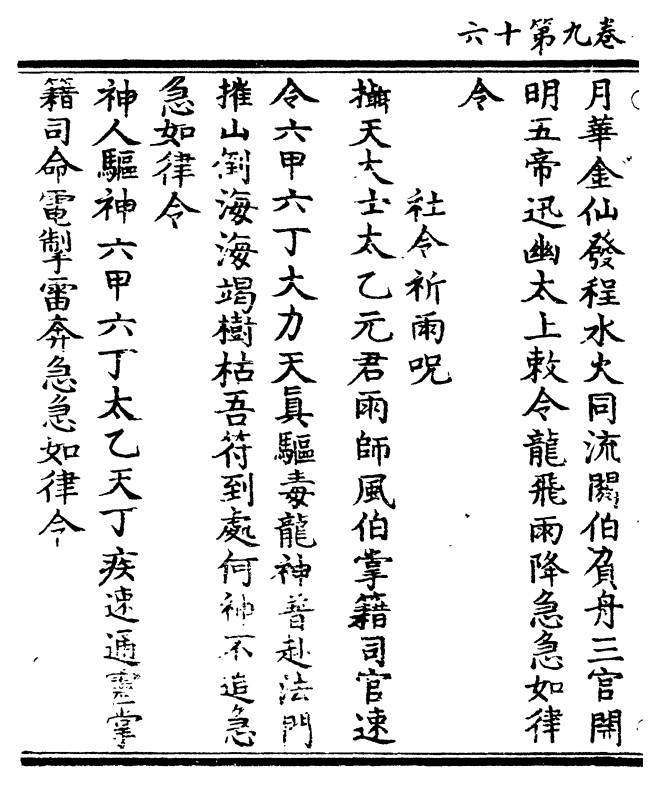 卷九第十六
月華金仙發程水火同流閼伯負舟三官開
明五帝迅幽太上敕令龍飛雨降急急如律
令
社令祈雨呪
攝天大士太乙元君雨師風伯掌籍司官速
令六甲六丁大力天眞驅毒龍神普赴法門
摧山倒海海竭樹枯吾符到處何神不追急
急如律令
神人驅神六甲六丁太乙天丁疾速通靈掌
籍司命電掣雷奔急急如律令